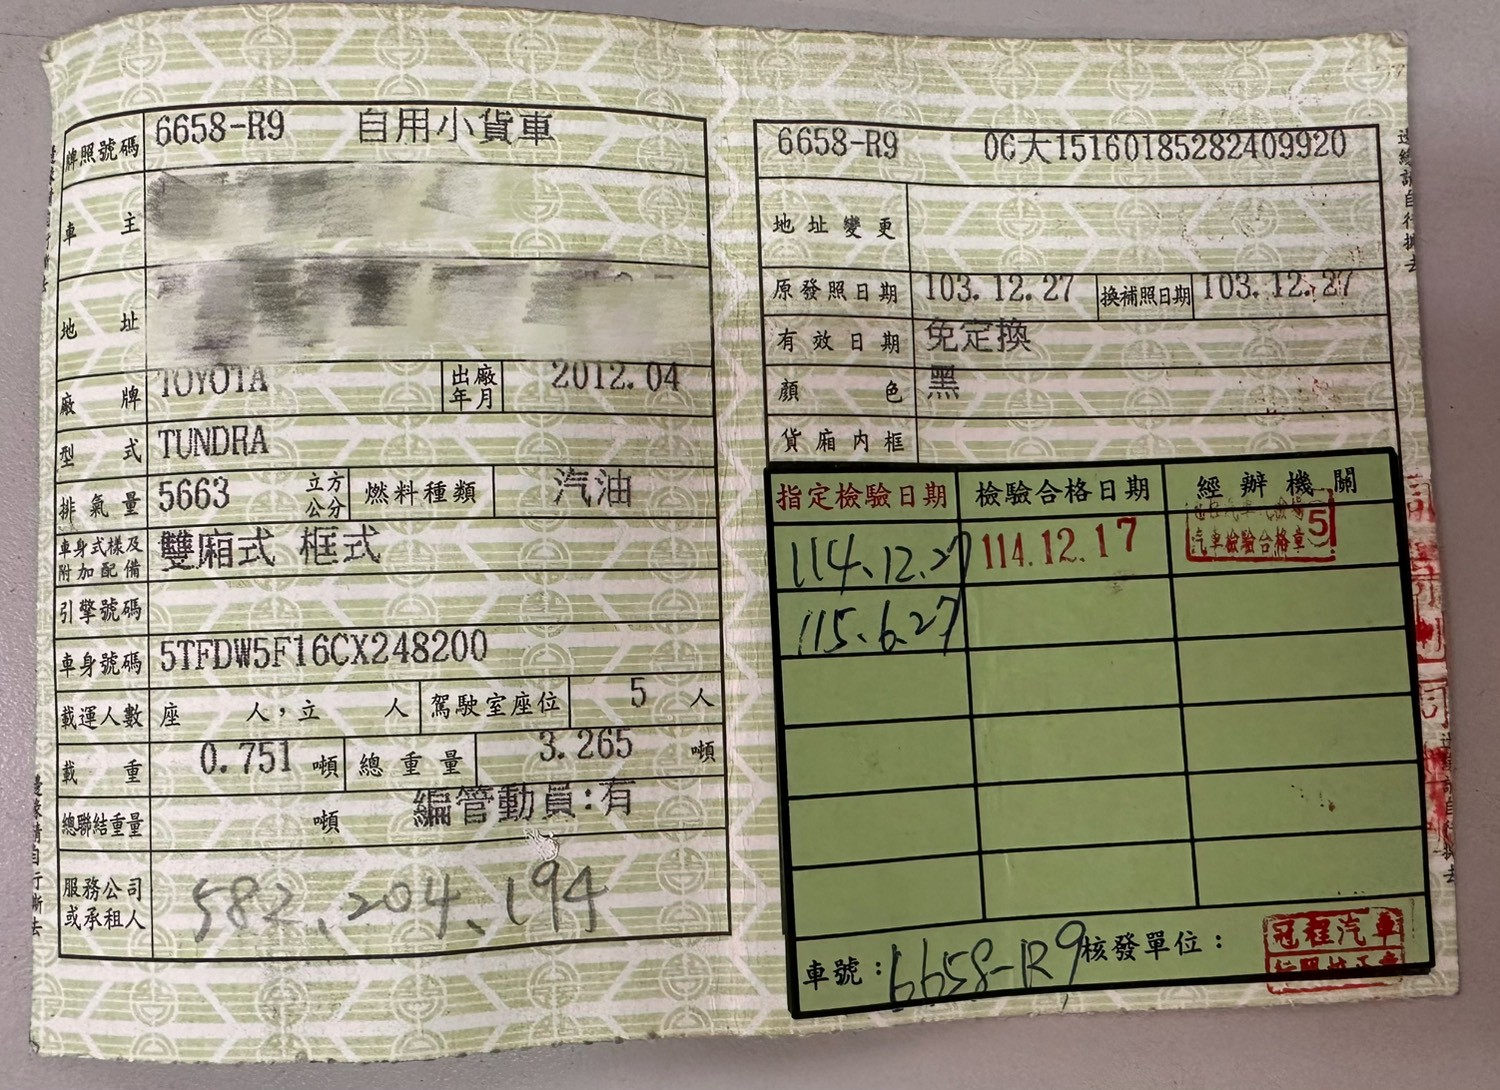 牌照號碼 6658-R9 自用小貨車
車主
地址
廠牌 TOYOTA 出廠年月 2012.04
型式 TUNDRA
排氣量 5663 立方公分 燃料種類 汽油
車身式樣及附加配備 雙廂式 框式
引擎號碼
車身號碼 5TFDW5F16CX248200
載運人數 座 人，立 人 駕駛室座位 5 人
載重 0.751 噸 總重量 3.265 噸
總聯結重量 噸 編管動員:有
服務公司或承租人 582、204、194
6658-R9 06大15160185282409920
地址變更
原發照日期 103.12.27 換補照日期 103.12.27
有效日期 免定換
顏色 黑
貨廂內框
指定檢驗日期 檢驗合格日期 經辦機關
114.12.27 114.12.17 汽車檢驗合格章 5
115.6.27
車號：6658-R9 核發單位：冠程汽車